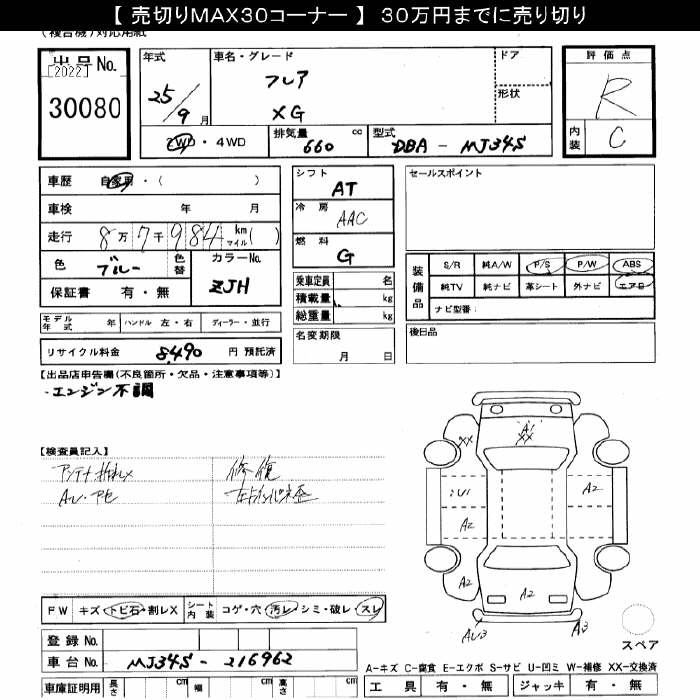 【 売切りMAX30コーナー 】 30万円までに売り切り
(複合機)対応用紙
出品No.
[2022]
30080
年式
25/9 月
車名・グレード
フレア
XG
ドア
形状
評価点
R
内装
C
2WD・4WD
排気量
660 cc
型式
DBA - MJ34S
車歴 自家用・( )
車検 年 月
走行 8万7千984 km マイル( )
色 ブルー 色替
カラーNo.
ZJH
保証書 有・無
シフト
AT
冷房
AAC
燃料
G
乗車定員 名
積載量 kg
総重量 kg
セールスポイント
装備品
S/R 純A/W P/S P/W ABS
純TV 純ナビ 革シート 外ナビ エアB
ナビ型番:
モデル年式 年 ハンドル 左・右 ディーラー・並行
名変期限
月 日
後日品
リサイクル料金 8,490 円 預託済
【出品店申告欄(不良箇所・欠品・注意事項等)】
・エンジン不調
【検査員記入】
アンテナ折れX
修復
A1
XX
XX
A2
A2
A2
A2
A2
AU3
A3
FW キズ・トビ石・割レX シート内装 コゲ・穴・汚レ・シミ・破レ・スレ
スペア
登録No.
車台No. MJ34S - 216962
A-キズ C-腐食 E-エクボ S-サビ U-凹ミ W-補修 XX-交換済
車庫証明用 長さ cm 幅 cm 高さ cm
工具 有・無 ジャッキ 有・無